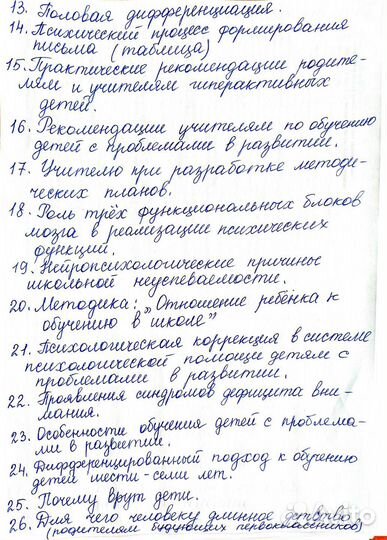 13. Половая дифференциация.
14. Психический процесс формирования
письма (таблица)
15. Практические рекомендации родите-
лям и учителям гиперактивных
детей.
16. Рекомендации учителям по обучению
детей с проблемами в развитии.
17. Учителю при разработке методи-
ческих планов.
18. Роль трёх функциональных блоков
мозга в реализации психических
функций.
19. Нейропсихологические причины
школьной неуспеваемости.
20. Методика: „Отношение ребёнка к
обучению в школе”
21. Психологическая коррекция в системе
психологической помощи детям с
проблемами в развитии.
22. Проявления синдромов дефицита вни-
мания.
23. Особенности обучения детей с пробле-
ми в развитии.
24. Дифференцированный подход к обучению
детей шести-семи лет.
25. Почему врут дети.
26. Для чего человеку длинное детство
(родителям будущих первоклассников)
Avito